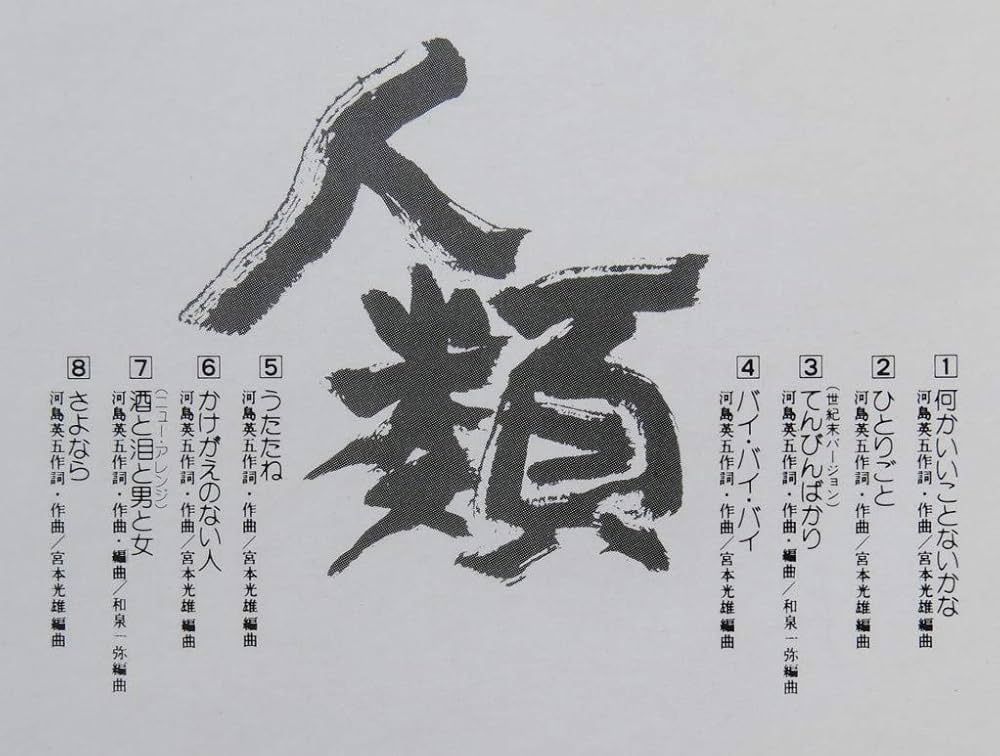 人類
1 何かいいことないかな
河島英五作詞・作曲/宮本光雄編曲
2 ひとりごと
河島英五作詞・作曲/宮本光雄編曲
3 てんびんばかり
(世紀末バージョン)
河島英五作詞・作曲・編曲/和泉一弥編曲
4 バイ・バイ・バイ
河島英五作詞・作曲/宮本光雄編曲
5 うたたね
河島英五作詞・作曲/宮本光雄編曲
6 かけがえのない人
河島英五作詞・作曲/宮本光雄編曲
7 酒と泪と男と女
(ニュー・アレンジ)
河島英五作詞・作曲・編曲/和泉一弥編曲
8 さよなら
河島英五作詞・作曲/宮本光雄編曲